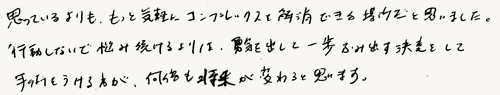 思っているよりも、もっと気軽にコンプレックスを解消できる場所だと思いました。
行動しないで悩み続けるよりは、勇気を出して一歩ふみ出す決意をして
手術をうける方が、何倍も将来が変わると思います。